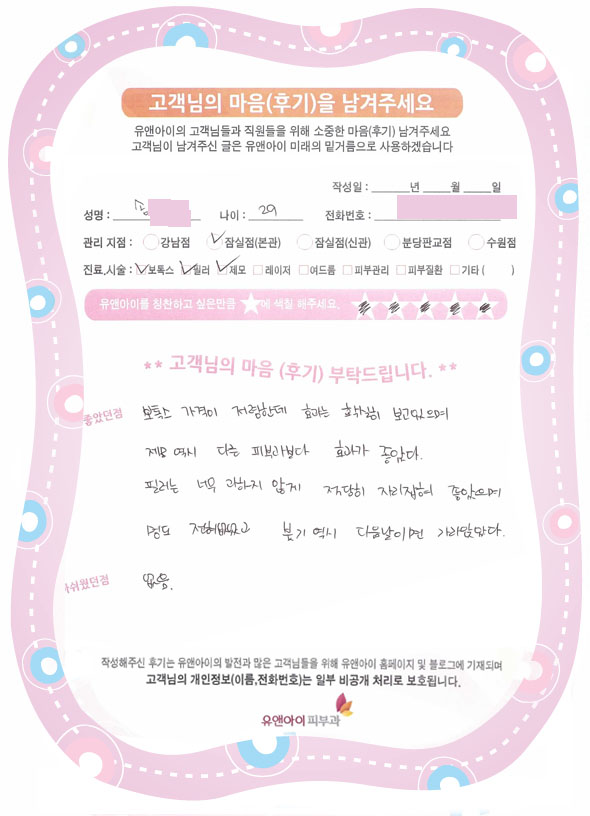 고객님의 마음(후기)을 남겨주세요
유앤아이의 고객님들과 직원들을 위해 소중한 마음(후기) 남겨주세요
고객님이 남겨주신 글은 유앤아이 미래의 밑거름으로 사용하겠습니다
작성일 : ______년 _____월 _____일
성명 : 나이 : 29 전화번호 :
관리 지점 : 강남점 잠실점(본관) 잠실점(신관) 분당판교점 수원점
진료,시술 : 보톡스 필러 제모 레이저 여드름 피부관리 피부질환 기타 ( )
유앤아이를 칭찬하고 싶은만큼 ★에 색칠 해주세요.
** 고객님의 마음 (후기) 부탁드립니다. **
좋았던점 보톡스 가격이 저렴한데 효과는 확실히 보고있으며
제모 역시 다른 피부과보다 효과가 좋았다.
필러는 너무 과하지 않게 적당히 자리잡혀 좋았으며
멍도 전혀없었고 붓기 역시 다음날이면 가라앉았다.
아쉬웠던점 없음.
작성해주신 후기는 유앤아이의 발전과 많은 고객님들을 위해 유앤아이 홈페이지 및 블로그에 기재되며
고객님의 개인정보(이름,전화번호)는 일부 비공개 처리로 보호됩니다.
유앤아이피부과